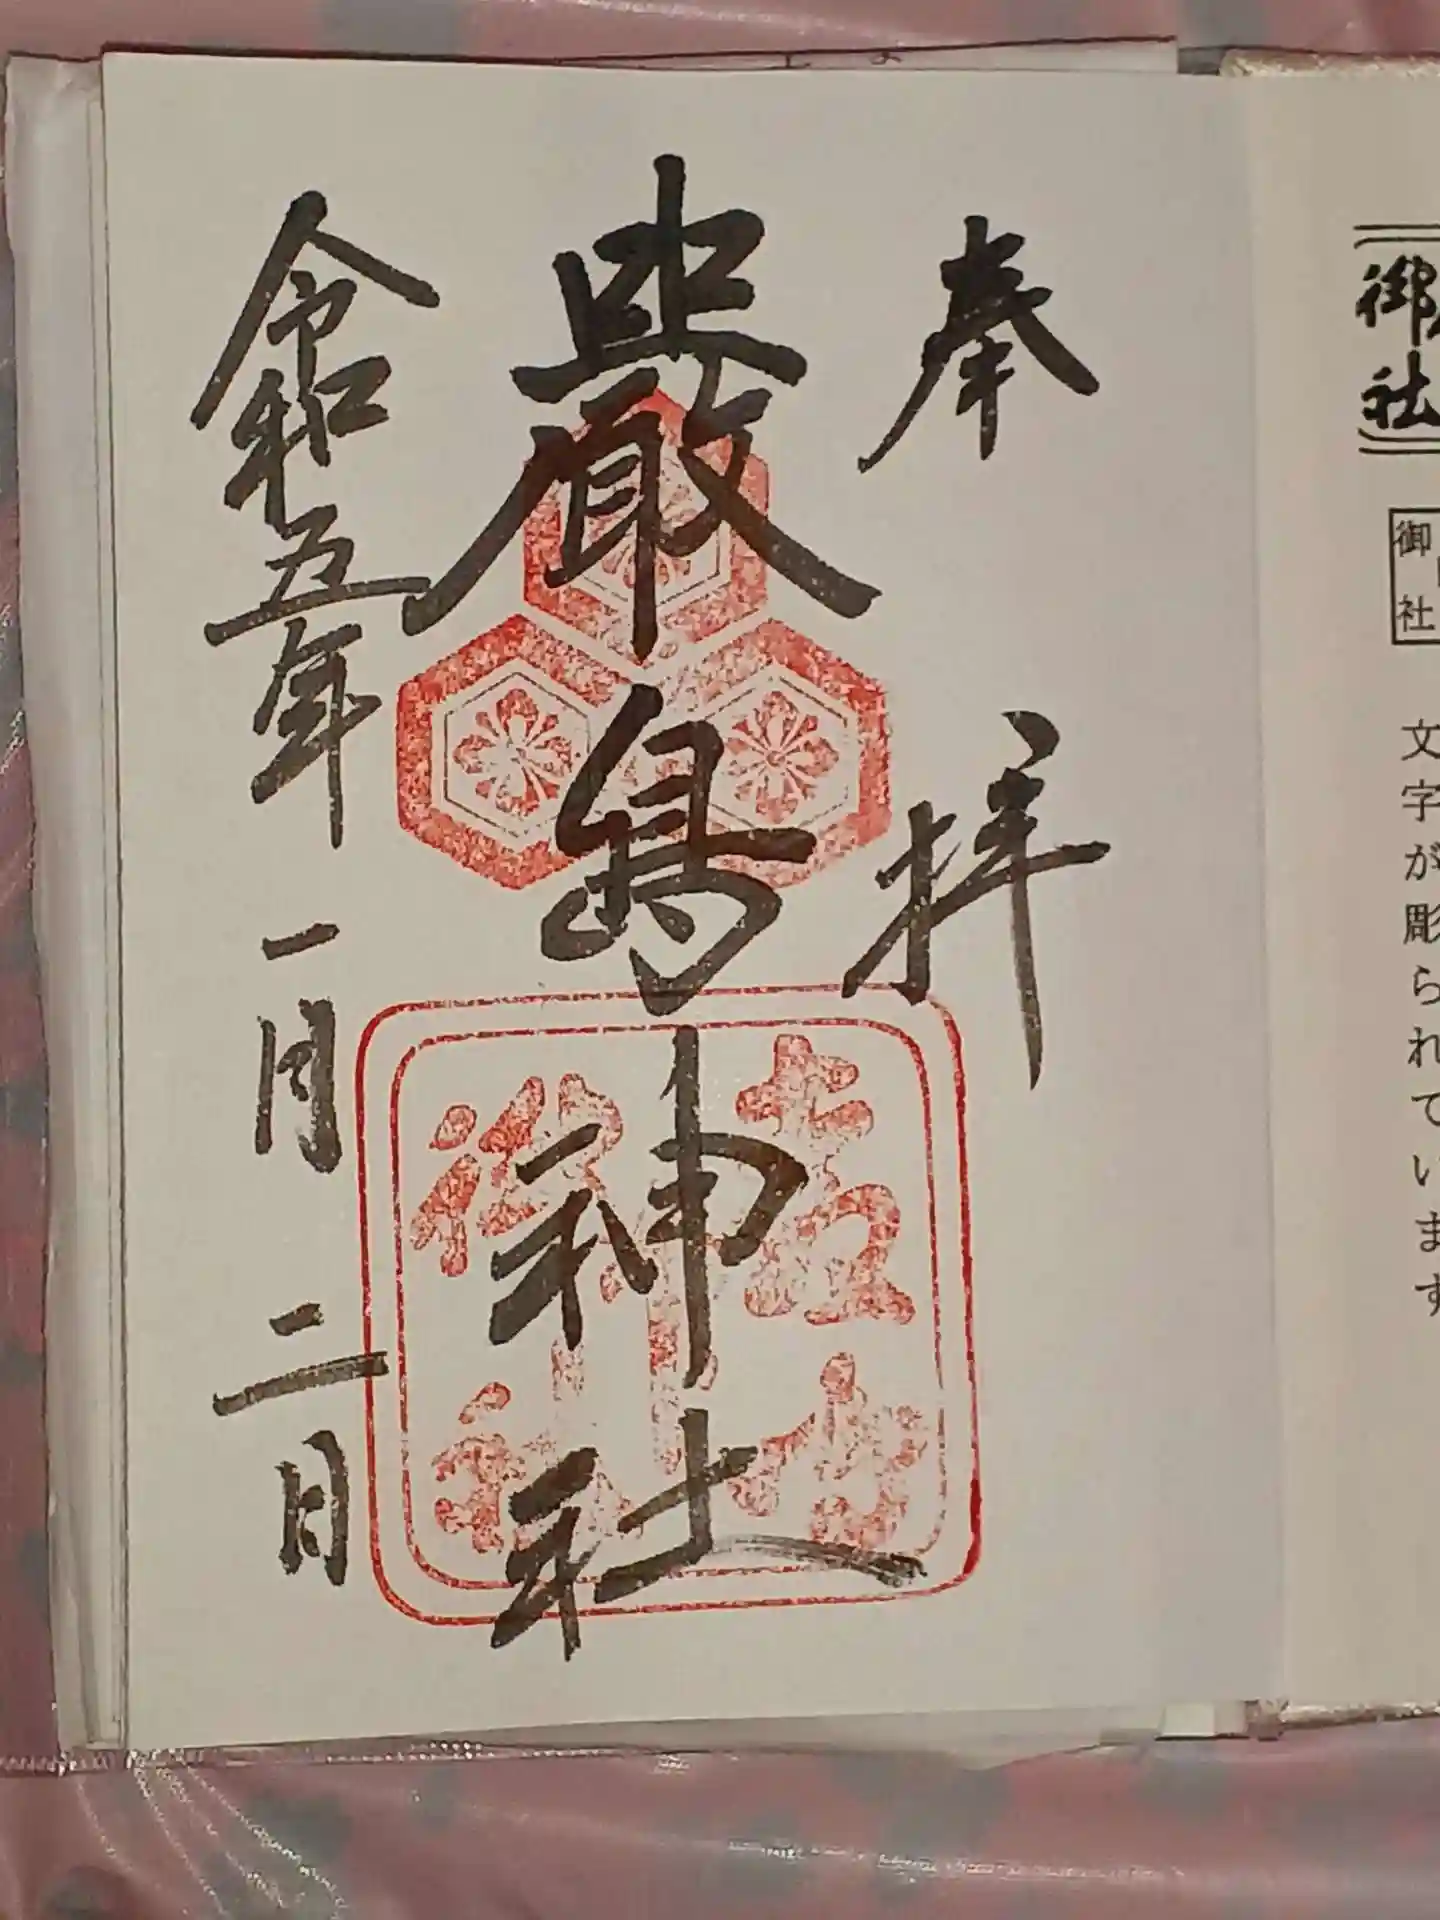 御
社
御
社
文字が彫られています
奉拝
嚴島神社
令和五年一月二日